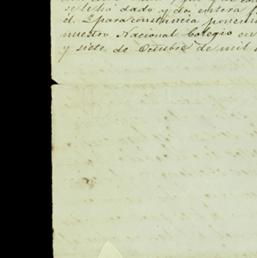 se le ha dado y da entera f
él. I para constancia ponemo
nuestro Nacional Colegio en
y siete de Octubre de mil